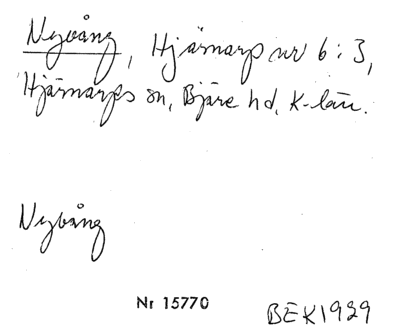 Nyvång, Hjärnarp nr 6:3,
Hjärnarps sn, Bjäre hd, K-län.
Nyvång
Nr 15770
BEK1929